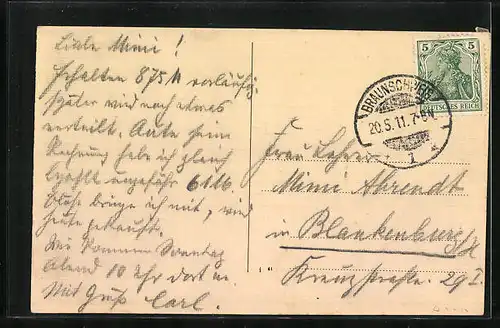 Liebe Mimi!
Erhalten 875 M vorläufig,
später wird noch etwas
erteilt.
Rechnung habe ich gleich
bezahlt ungefähr
bringe ich mit, wird
heute gekauft.
Wir kommen Sonntag
Abend 10 Uhr dort an.
Mit Gruß Carl.
5 5
DEUTSCHES REICH
BRAUNSCHWEIG
20.5.11.7-8N.
* 1 *
Frau Lehrer
Mimi Ahrendt
in Blankenburg a/H
Kreuzstraße 29 I.